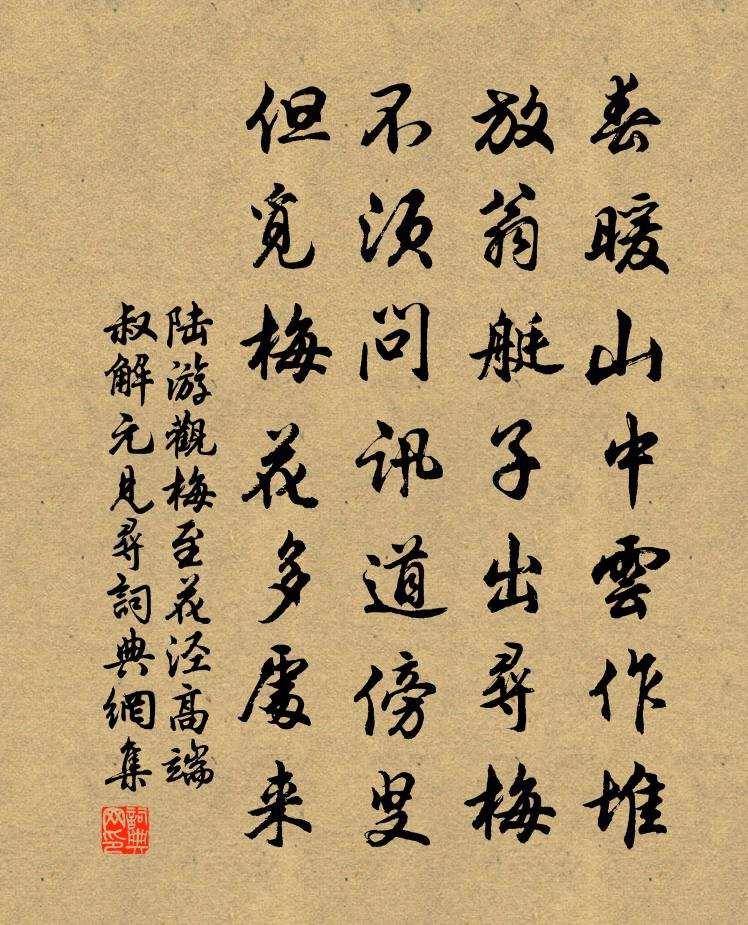 春暖山中雲作堆
放翁艇子出尋梅
不須問訊道傍叟
但覓梅花多處来
陆游觀梅至花泾高端
叔解元見尋詞典網集
詞典网印